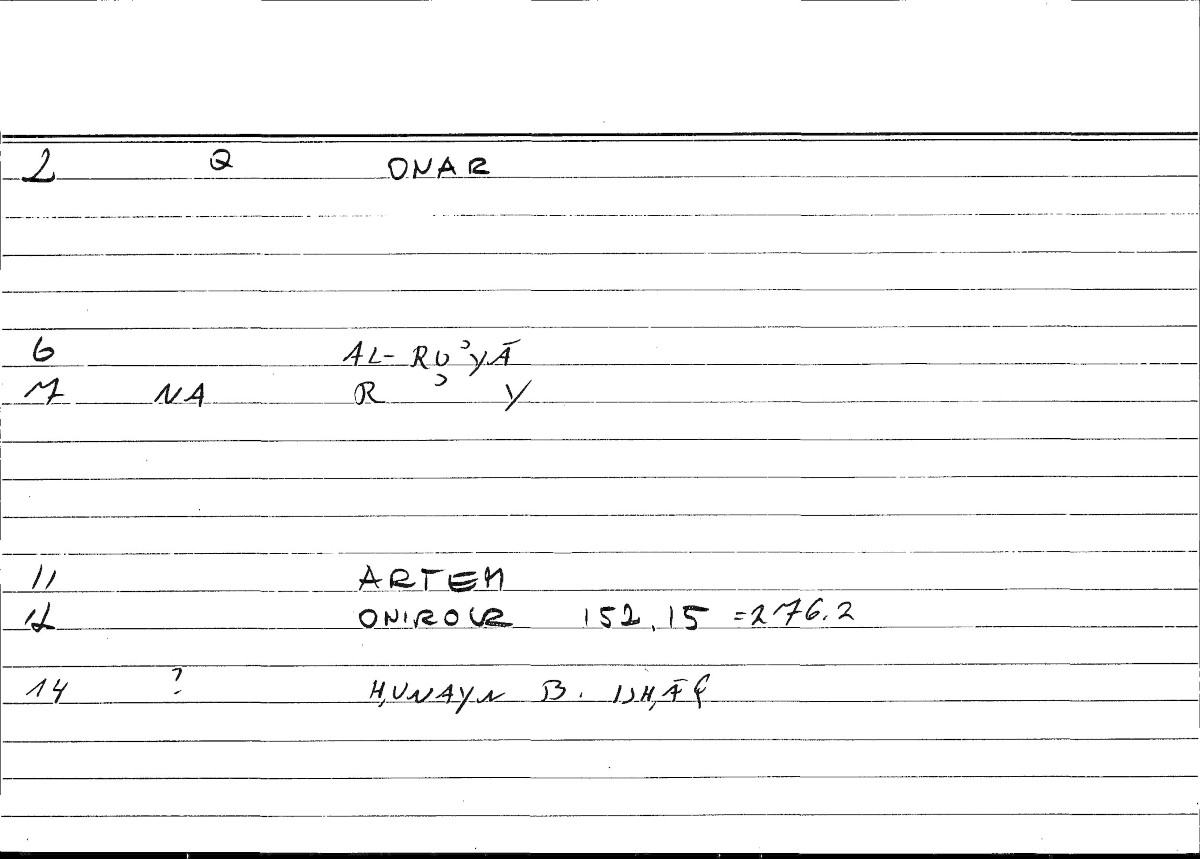 2 Q ONAR
6 AL-RUʾYĀ
7 NA R ʾ Y
11 ARTEM
12 ONIROCR 152.15 =276.2
14 ? H,UNAYN B. ISH,ĀQ